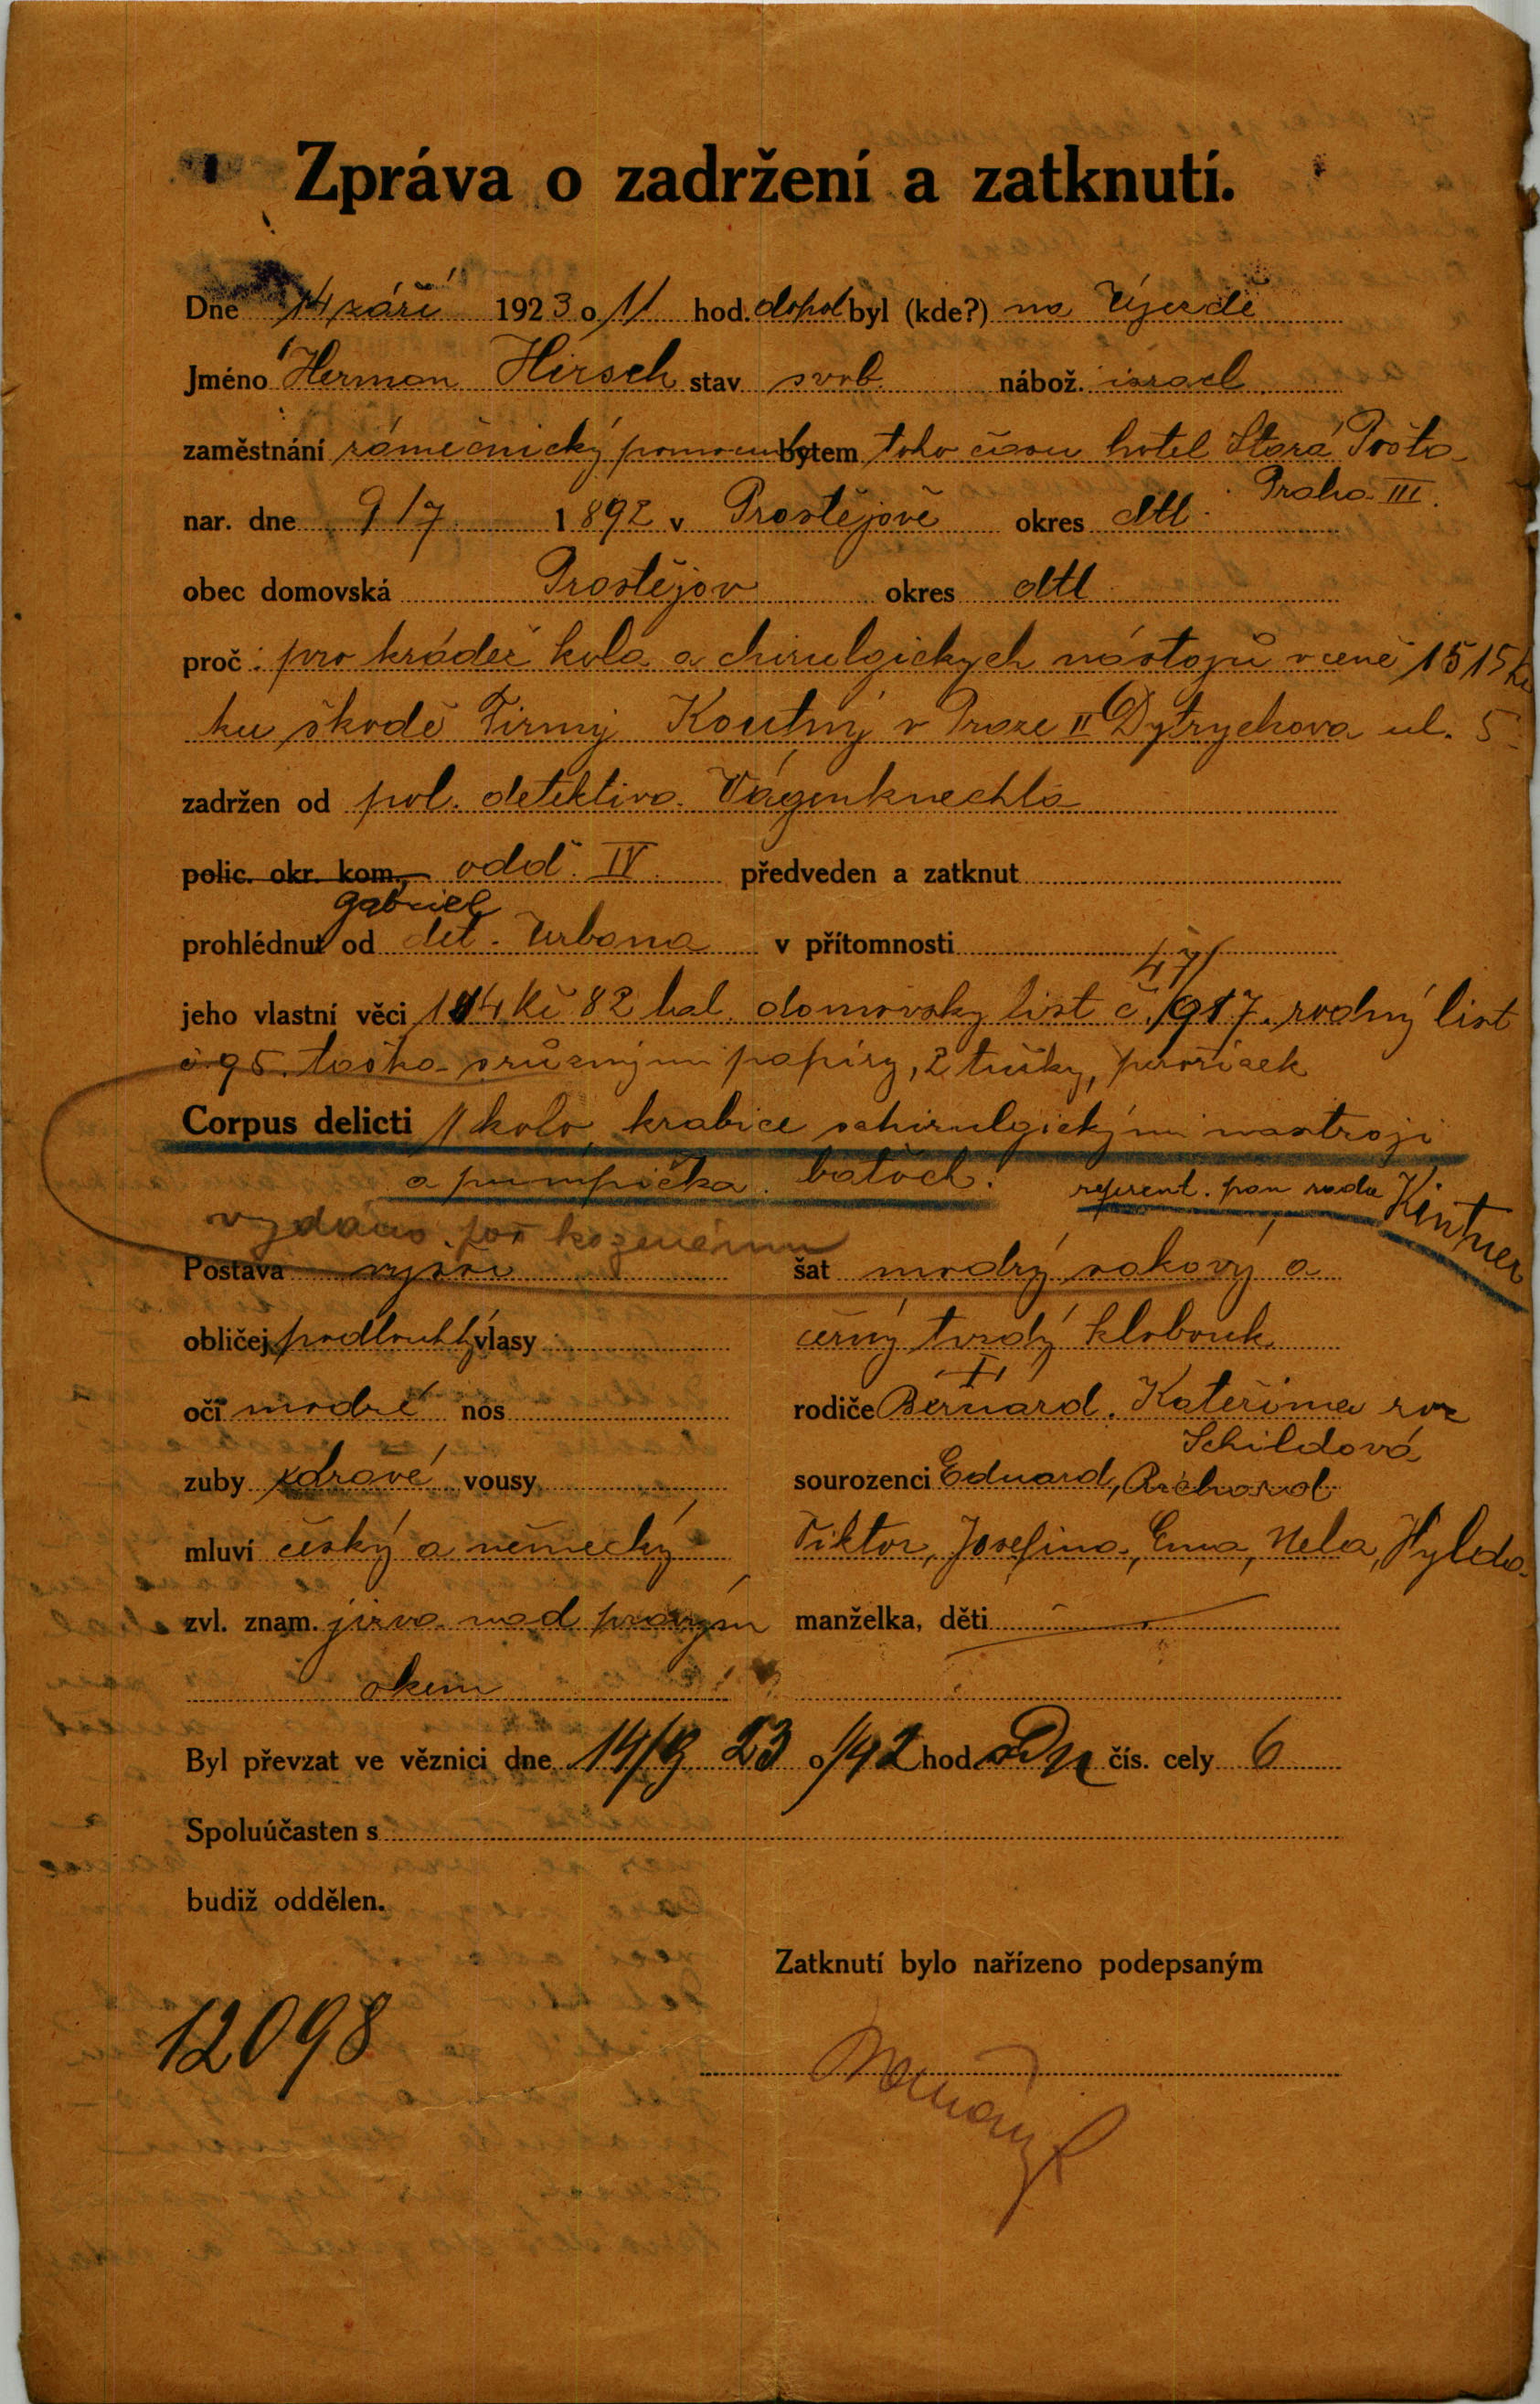 Zpráva o zadržení a zatknutí.
Dne 14 září 1923 o 11 hod. dopol byl (kde?) na Újezdě
Jméno Herman Hirsch stav svob. nábož. israel.
zaměstnání zámečnický pomocník bytem toho času hotel Stará Pošta
Praha III.
nar. dne 9/7 1892 v Prostějově okres dtl.
obec domovská Prostějov okres dtl
proč: pro krádež kola a chirulgických nástojů v ceně 1515 Kč
ku škodě Firmy Koutný v Praze II Dytrychova ul. 5
zadržen od pol. detektiva Vágenknechta
polic. okr. kom., odd. IV. předveden a zatknut
Gabriel
prohlédnut od det. Urbana v přítomnosti
47/
jeho vlastní věci 114 Kč 82 hal. domovský list č. 917. rodný list
č 95. taška s různými papíry, 2 tužky, peroříz​ek
Corpus delicti 1 kolo, krabice s chirulgickými nastroji
a pumpička. batoch. referent. pan rada Kintner
vydáno
Postava vyšší šat modrý sakový a
obličej podlouhlý vlasy černý tvrdý klobouk
oči modré nos rodiče Bernard. Kateřina roz
Schildová
zuby zdravé vousy sourozenci Eduard, Richard
mluví český a německý Viktor, Josefina, Ema, Nela, Hylda
zvl. znam. jizva nad pravým manželka, děti —
okem
Byl převzat ve věznici dne 14/9 23 o 1/42 hod. čís. cely 6
Spoluúčasten s
budiž oddělen.
Zatknutí bylo nařízeno podepsaným
12098